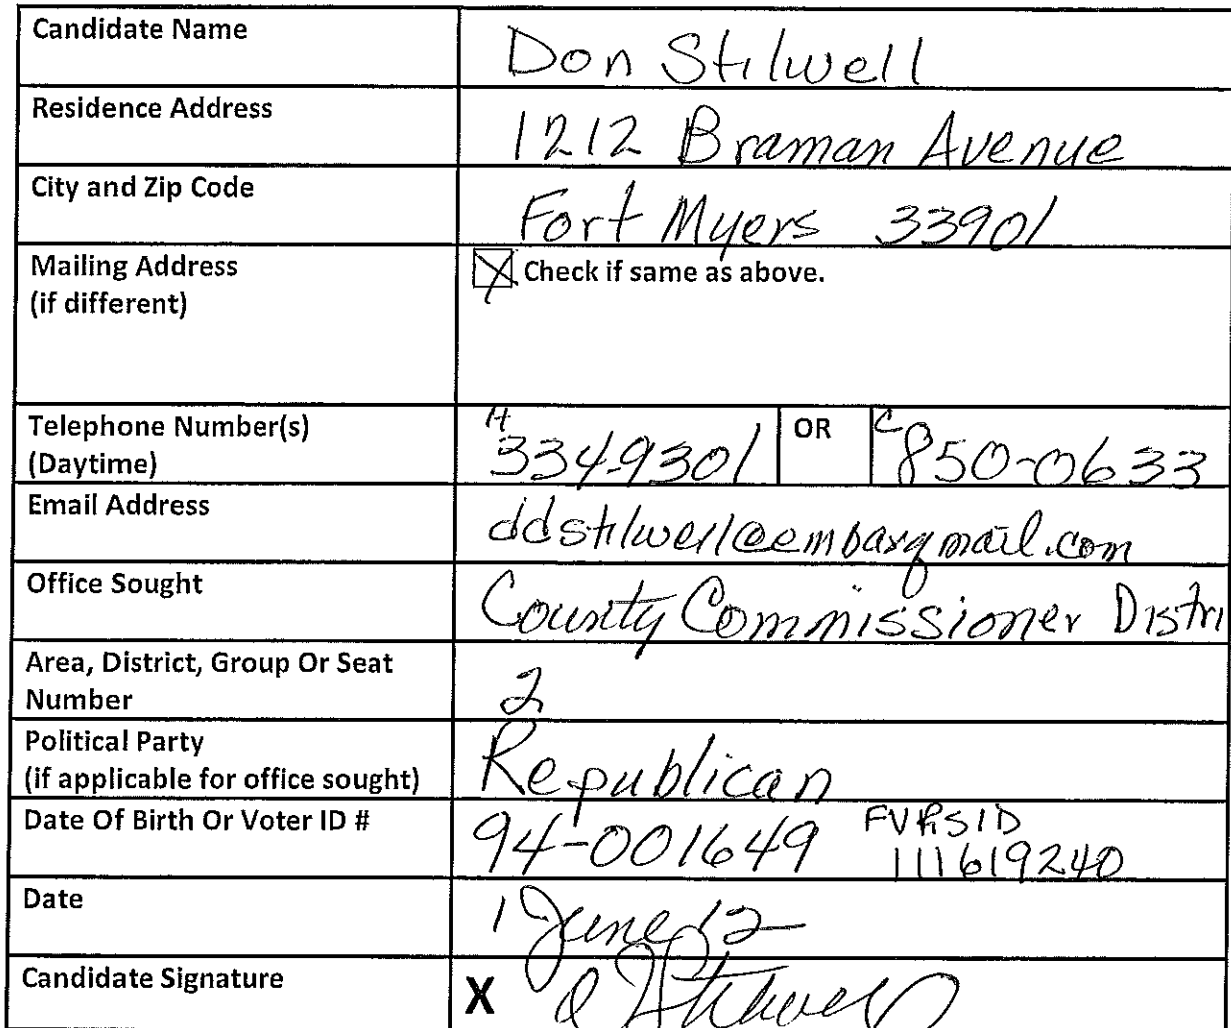 Candidate Name Don Stilwell
Residence Address 1212 Braman Avenue
City and Zip Code Fort Myers 33901
Mailing Address
(if different)
Check if same as above.
Telephone Number(s)
(Daytime)
H 334-9301 OR C 850-0633
Email Address ddstilwell@embarqmail.com
Office Sought County Commissioner Distri
Area, District, Group Or Seat
Number
2
Political Party
(if applicable for office sought)
Republican
Date Of Birth Or Voter ID # 94-001649 FVRSID
111619240
Date 1 June 12
Candidate Signature X D Stilwell